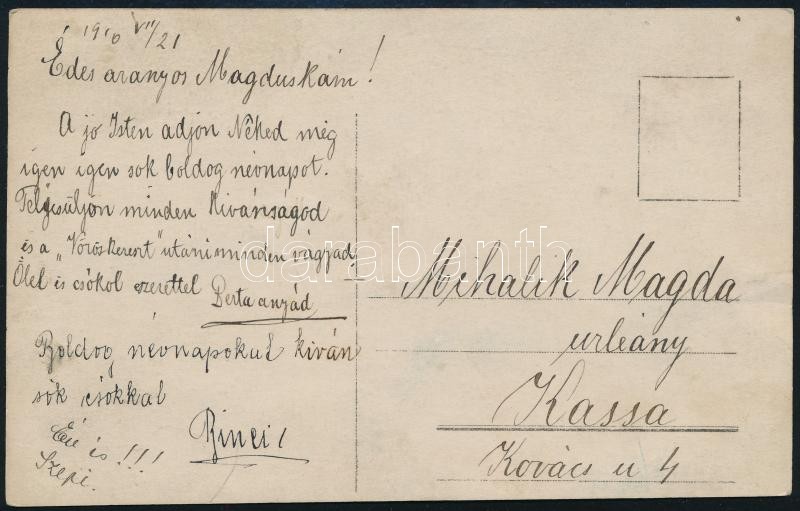 1910 VII/21
Édes aranyos Magduskám!
A jó Isten adjon Néked még
igen igen sok boldog névnapot.
Teljesüljon minden Kivánságod
és a „Vöröskereszt" utáni minden vágyad.
Ölel és csókol szeretettel Berta anyád
Boldog névnapokat kiván
sok csókkal
Binci
Én is!!!
Szepi.
Mihalik Magda
urleány
Kassa
Kovács u 4
darabanth